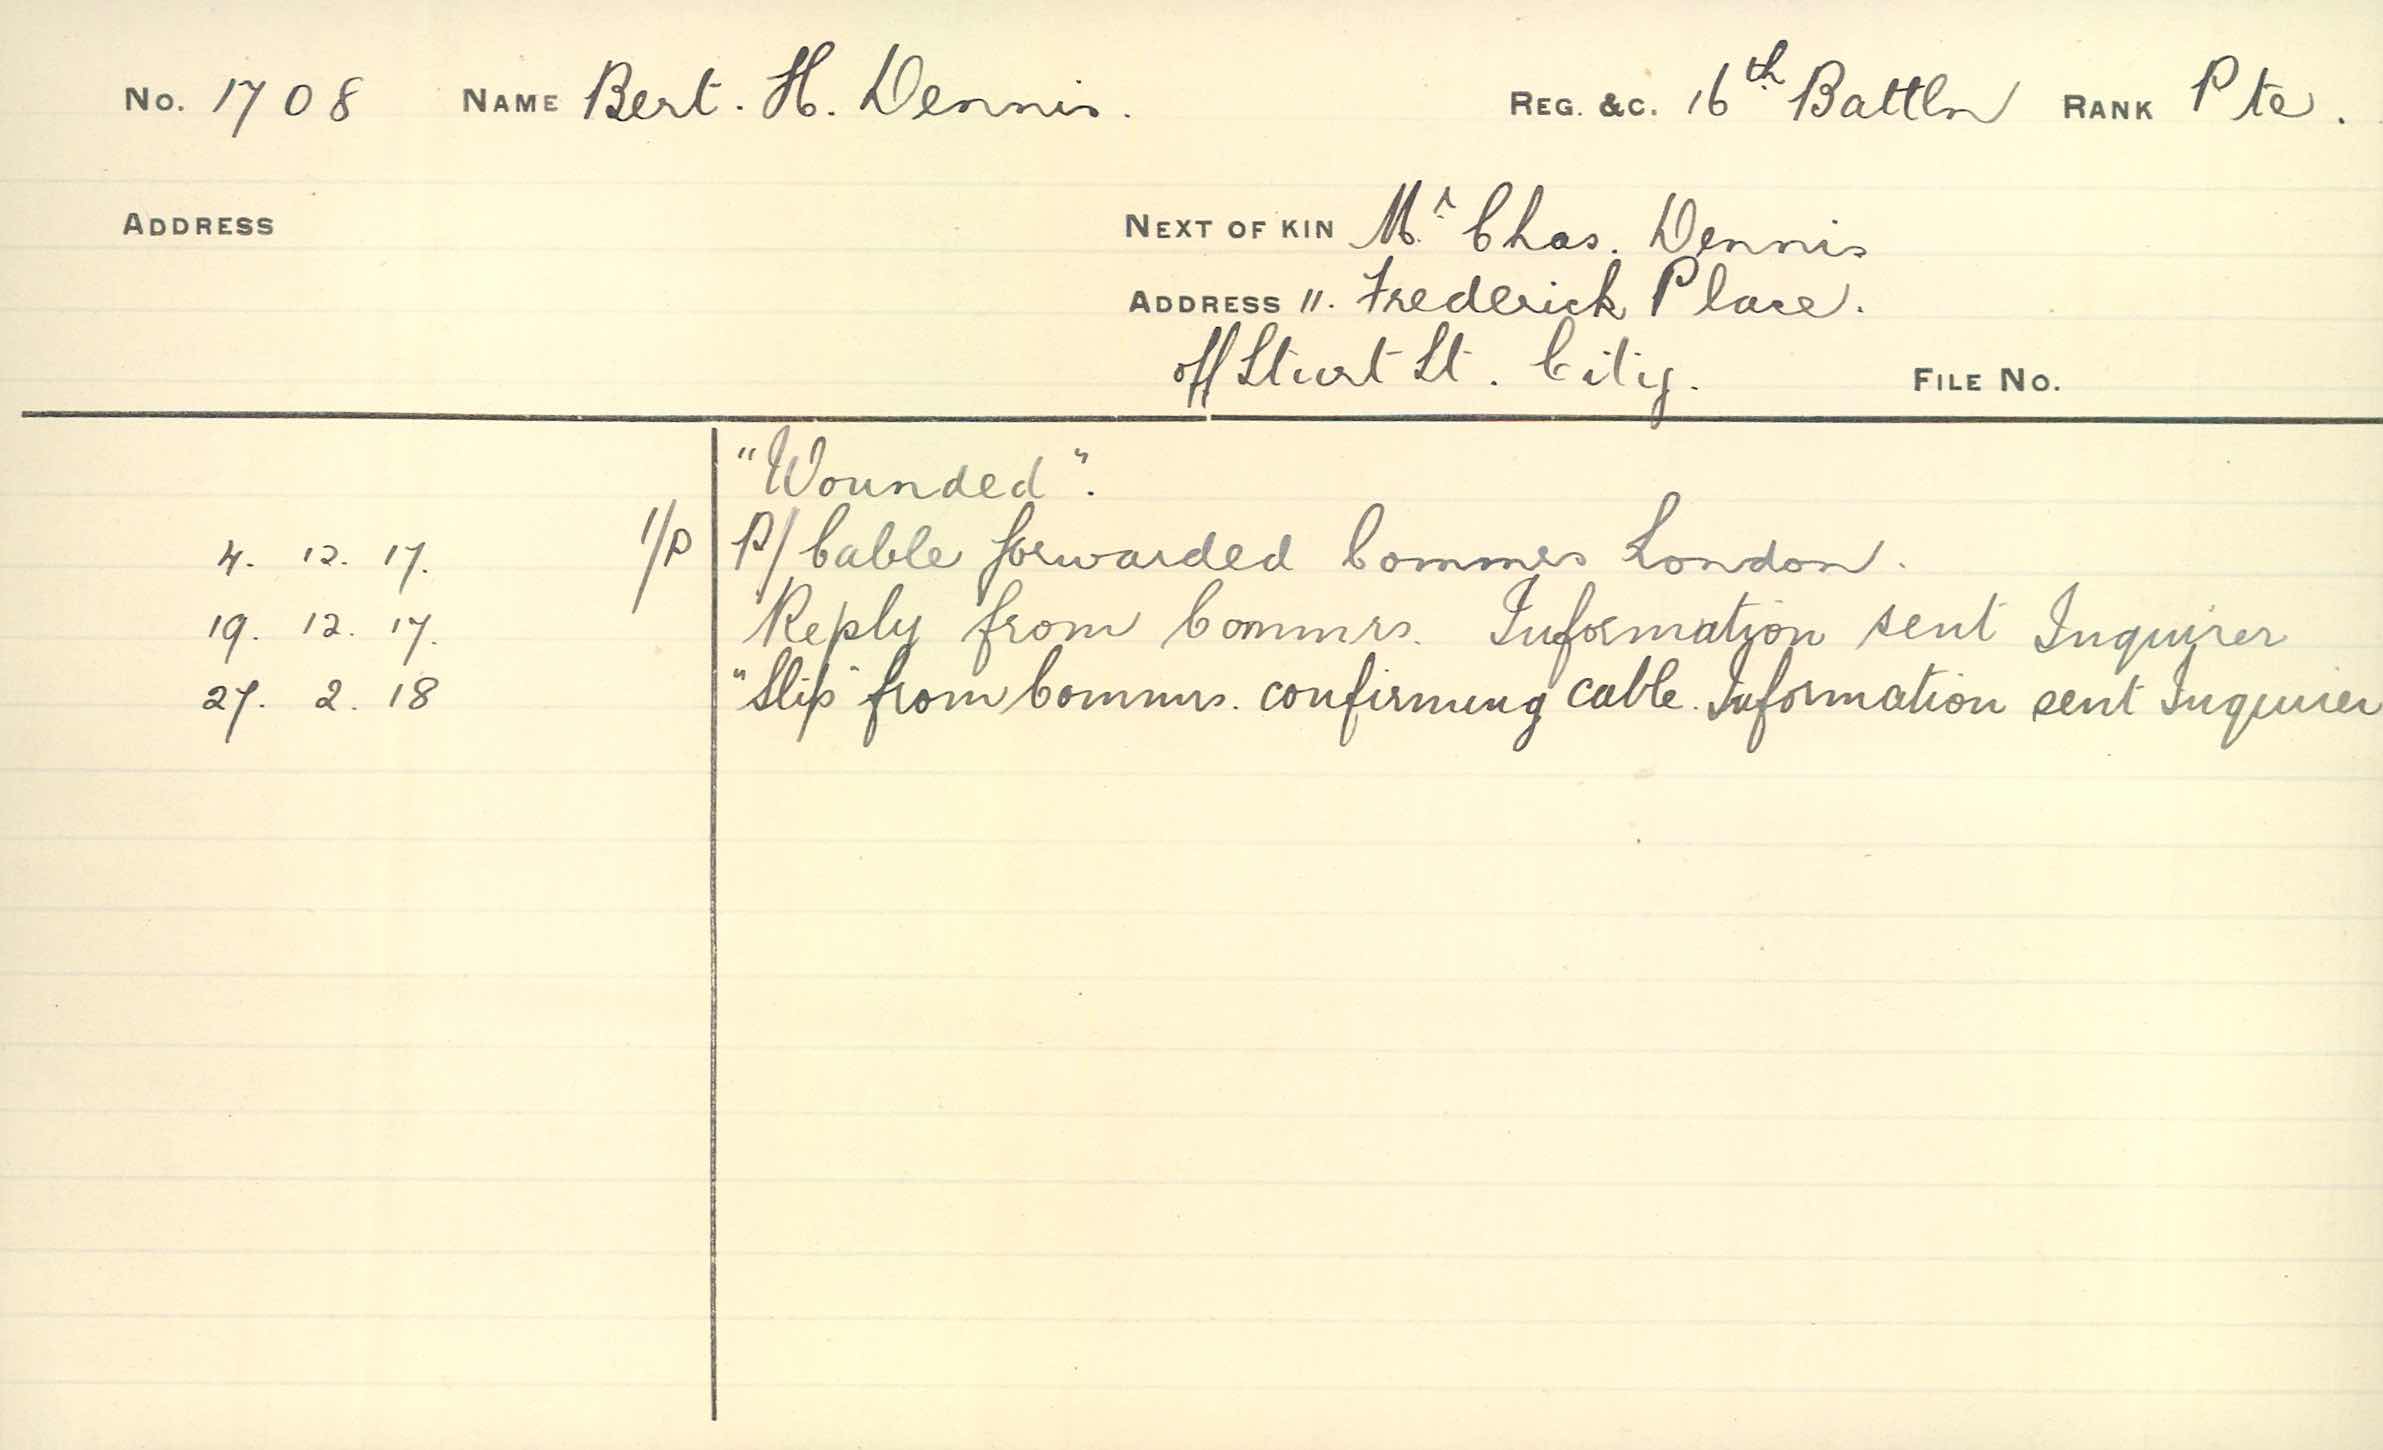 No. 1708 NAME Bert. H. Dennis. REG. &C. 16th Battln RANK Pte.
ADDRESS NEXT OF KIN Mr Chas. Dennis
ADDRESS 11. Frederick Place.
off Sturt St. City. FILE No.
"Wounded".
4. 12. 17. 1/P P/ Cable forwarded Commrs London.
19. 12. 17. Reply from Commrs. Information sent Inquirer
27. 2. 18 "Slip" from Commrs. confirming cable. Information sent Inquirer